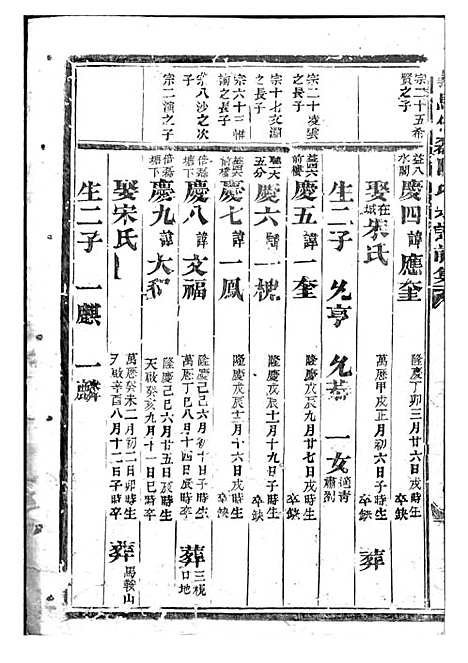 宗二十五希
賢之子
益八
水關
慶四諱應奎
隆慶丁卯三月廿六日戌時生
卒缺
娶在城朱氏
萬歷甲戌正月初六日亥時生
卒缺
葬
生二子 允亨 允恭 一女
宗二十凌雲
長子
益六
前樓
慶五諱一奎
隆慶戊辰九月廿七日戌時生
卒缺
宗十七文淵
之子
聰一大
五分
慶六諱一槐
隆慶戊辰十一月十九日子時生
卒缺
宗六十三
之長子
益六
前樓
慶七諱一鳳
隆慶戊辰十二月十六日戌時生
卒缺
宗八沙之次
子
塘下
慶八諱文福
隆慶己巳六月初十日子時生
萬歷丁巳八月十四日辰時卒
葬
口地
宗二演之子
塘下
慶九諱大
隆慶己巳六月廿五日辰時生
天啟癸亥九月十一日巳時卒
娶宋氏
萬歷癸未二月初二日卯時生
天啟辛酉八月十二日子時卒
葬馬鞍山
生二子 一麒 一麟